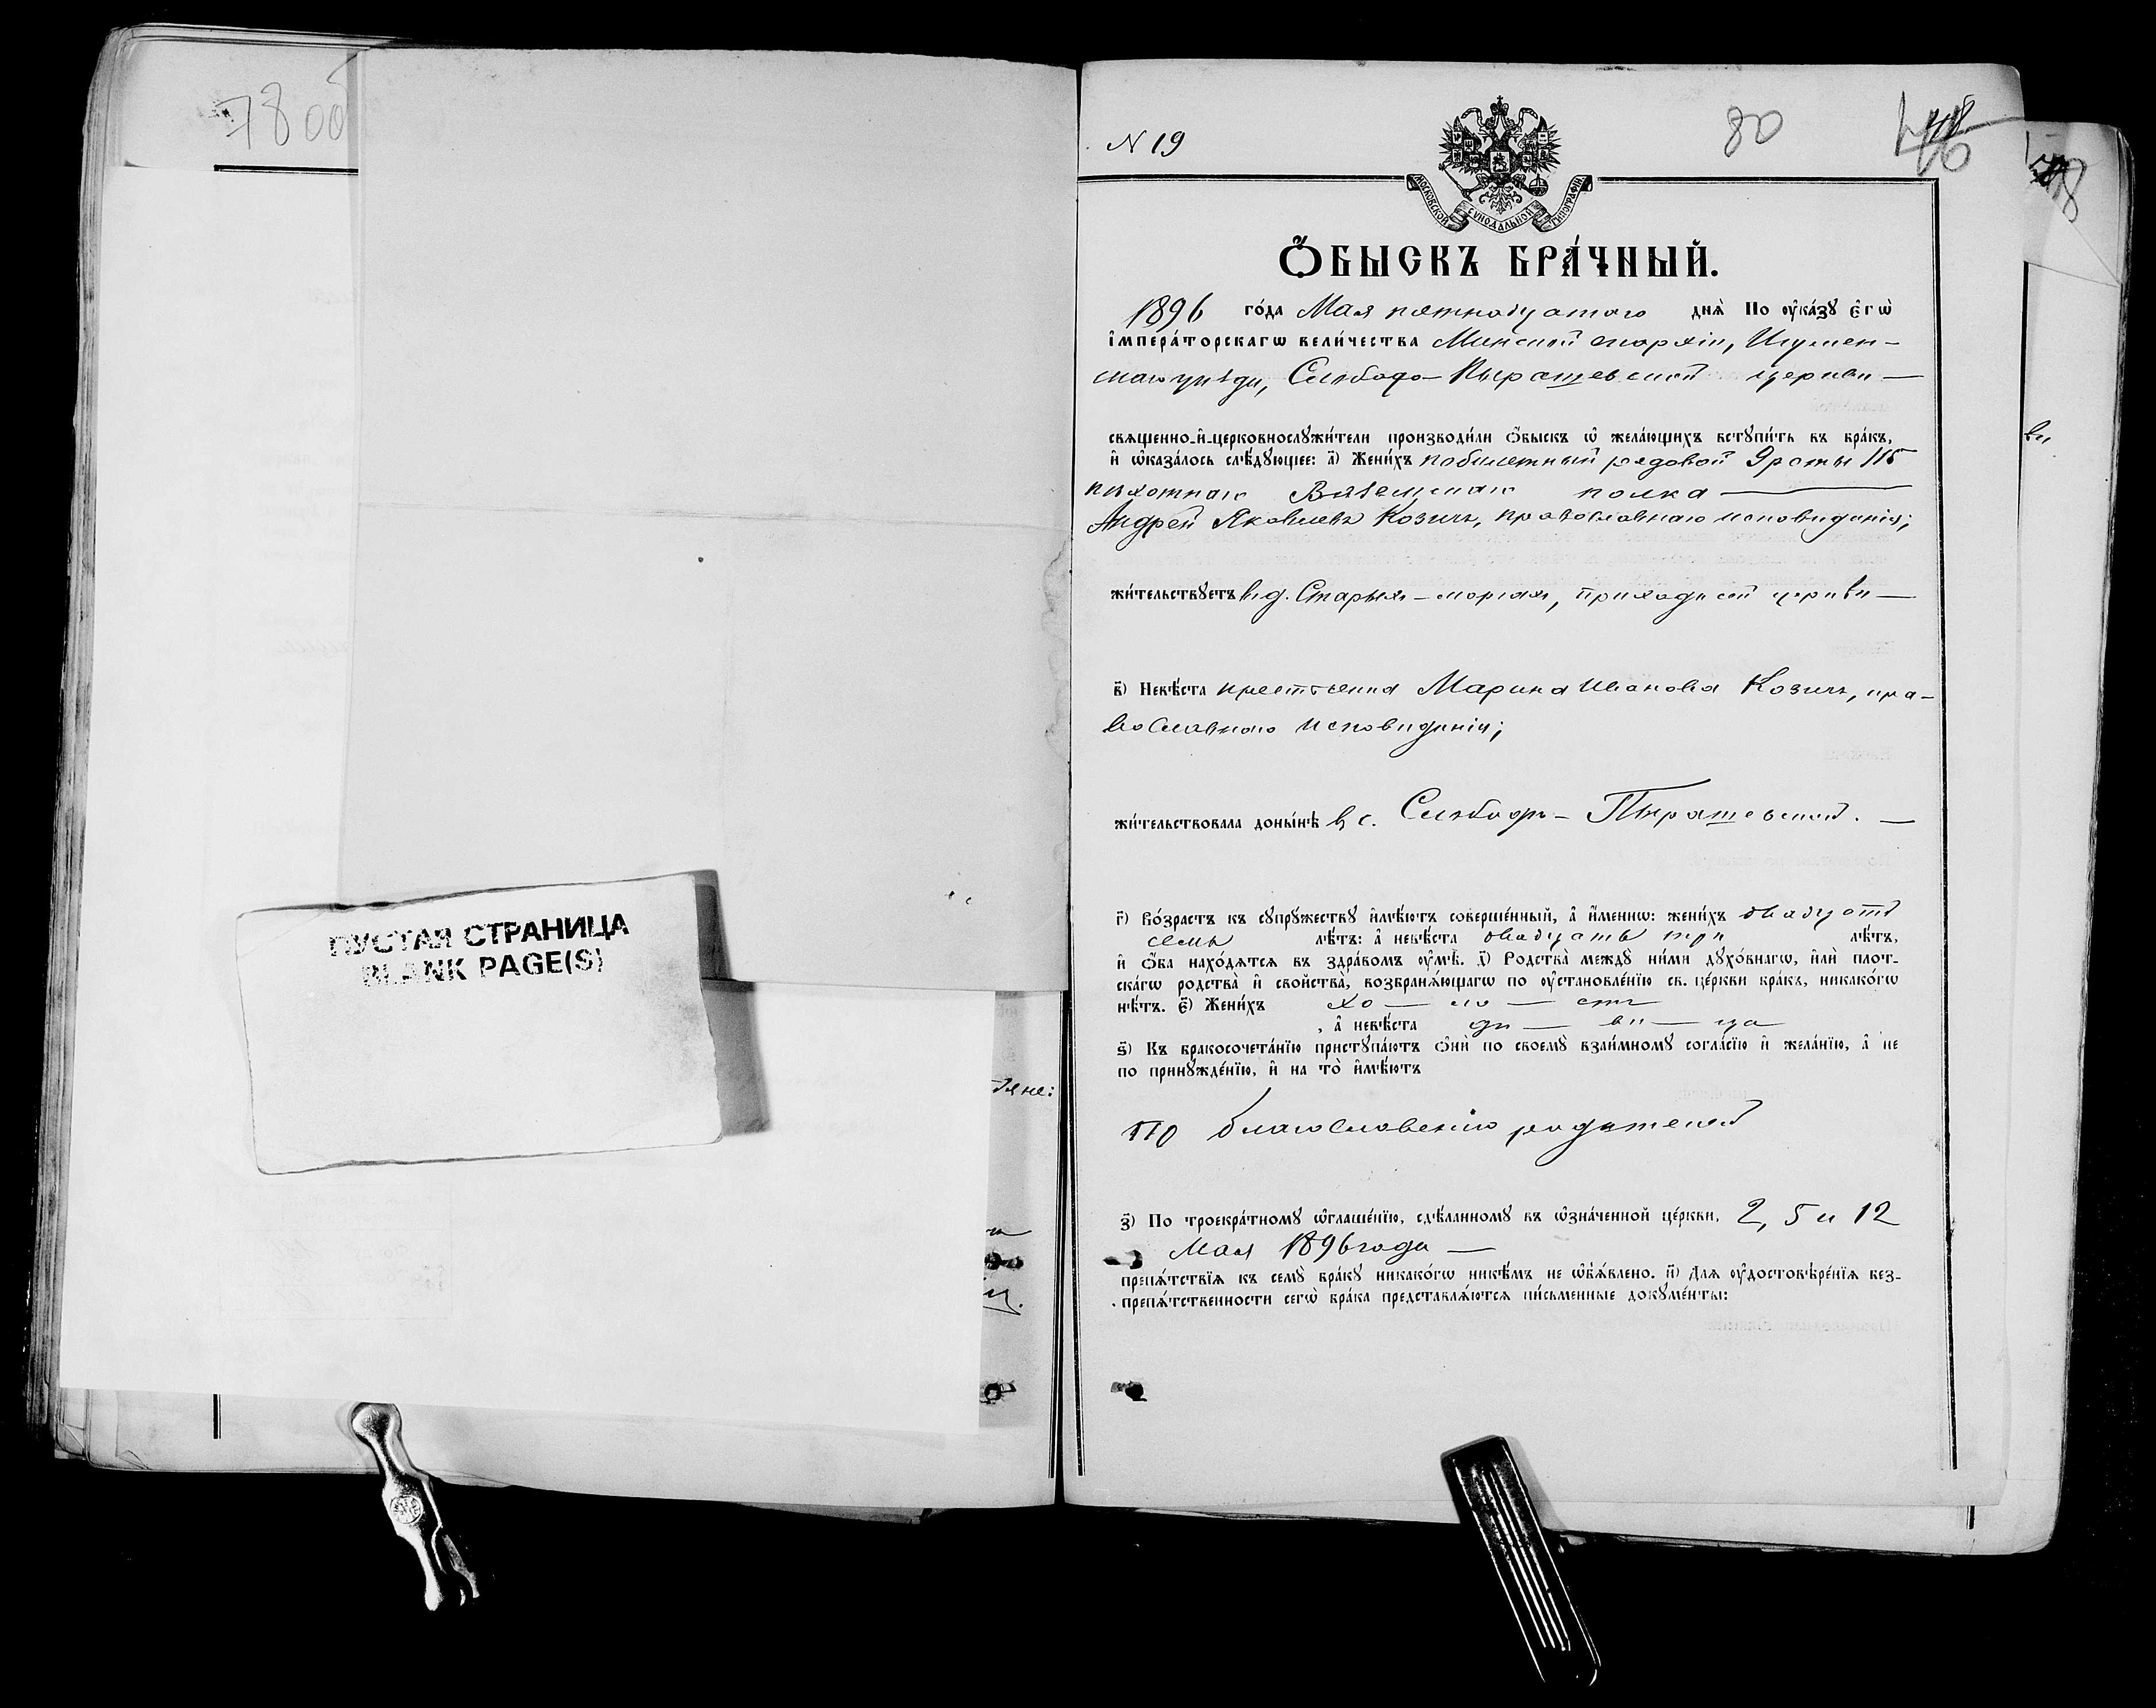 78 об
ПУСТАЯ СТРАНИЦА
BLANK PAGE(S)
дяне:
N 19
80
МОСКОВСКОЙ СѴНОДАЛЬНОЙ ТИПОГРАФІИ
Ѻ҆БЫСКЪ БРА́ЧНЫЙ.
1896 го́да Мая пятнадцатаго днѧ̀ По ᲂу҆ка́зꙋ є҆гѡ̀
і҆мпера́торскагѡ вели́чества Минской епархіи, Игумен-
скаго уѣзда, Слободо-Пырашевской церкви —
свѧще́нно-и҆-церковнослꙋжи́тели производи́ли ѻ҆́быскъ ѡ҆ жела́ющихъ встꙋпи́ть въ бра́къ,
и҆ ѡ҆каза́лось слѣ́дꙋющее: а҃) Жени́хъ побилетный рядовой 9 роты 115
пѣхотнаго Вяземскаго полка —
Андрей Яковлевъ Козичъ, православнаго исповѣданія;
жи́тельствꙋетъ въ д. Старыхъ- , приходской церкви —
в҃) Невѣ́ста крестьянка Марина Иванова Козичъ, пра-
вославнаго исповѣданія;
жи́тельствовала доны́нѣ въ с. Слободѣ-Пырашевской. —
г҃) Во́зрастъ къ сꙋпрꙋ́жествꙋ и҆мѣ́ютъ соверше́нный, а҆ и҆́меннѡ: жени́хъ двадцать
семь лѣ́тъ: а҆ невѣ́ста двадцать три лѣ́тъ,
и҆ ѻ҆́ба нахо́дѧтсѧ въ здра́вомъ ᲂу҆мѣ̀. д҃) Родства̀ междꙋ ни́ми дꙋхо́внагѡ, и҆лѝ плот-
ска́гѡ родства̀ и҆ свойства̀, возбранѧ́ющагѡ по ᲂу҆становле́нїю св. це́ркви бра́къ, никако́гѡ
нѣ́тъ. є҃) Жени́хъ хо — ло — стъ —
, а҆ невѣ́ста дѣ — ви — ца —
ѕ҃) Къ бракосочета́нїю пристꙋпа́ютъ ѻ҆нѝ по своемꙋ̀ взаи́мномꙋ согла́сїю и҆ жела́нїю, а҆ не
по принꙋжде́нїю, и҆ на то̀ и҆мѣ́ютъ
по благословенію родителей
з҃) По троекра́тномꙋ ѡ҆глаше́нїю, сдѣ́ланномꙋ въ ѡ҆зна́ченной це́ркви, 2, 5 и 12
Мая 1896 года —
препѧ́тствїѧ къ семꙋ̀ бра́кꙋ никако́гѡ никѣ́мъ не ѡ҆б̾ѧ́влено. и҃) Длѧ ᲂу҆достовѣре́нїѧ без-
препѧ́тственности сегѡ̀ бра́ка представлѧ́ютсѧ пи́сьменные докꙋме́нты: